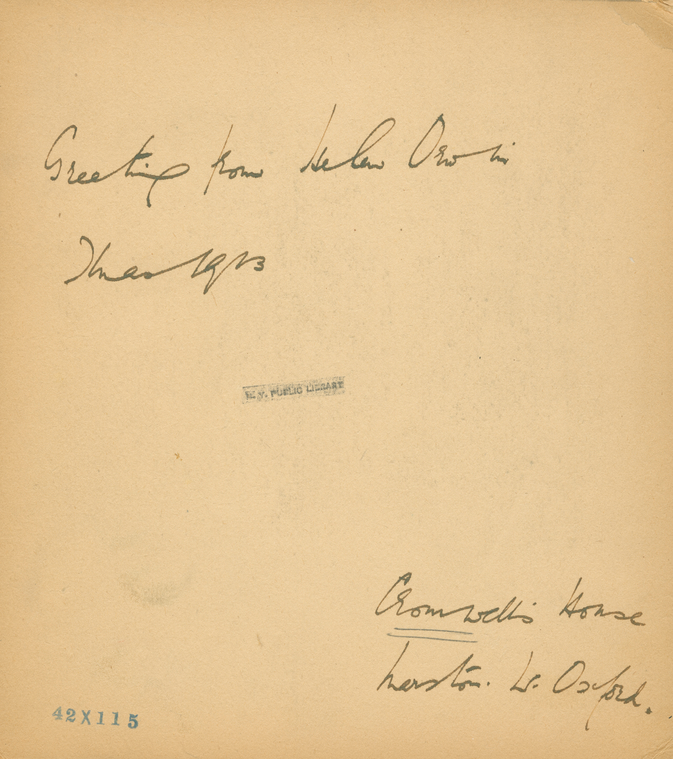 Greeting from Helen Orwin
Xmas 1913
N.Y. PUBLIC LIBRARY
Cromwell's House
Marston. Oxford.
42X115